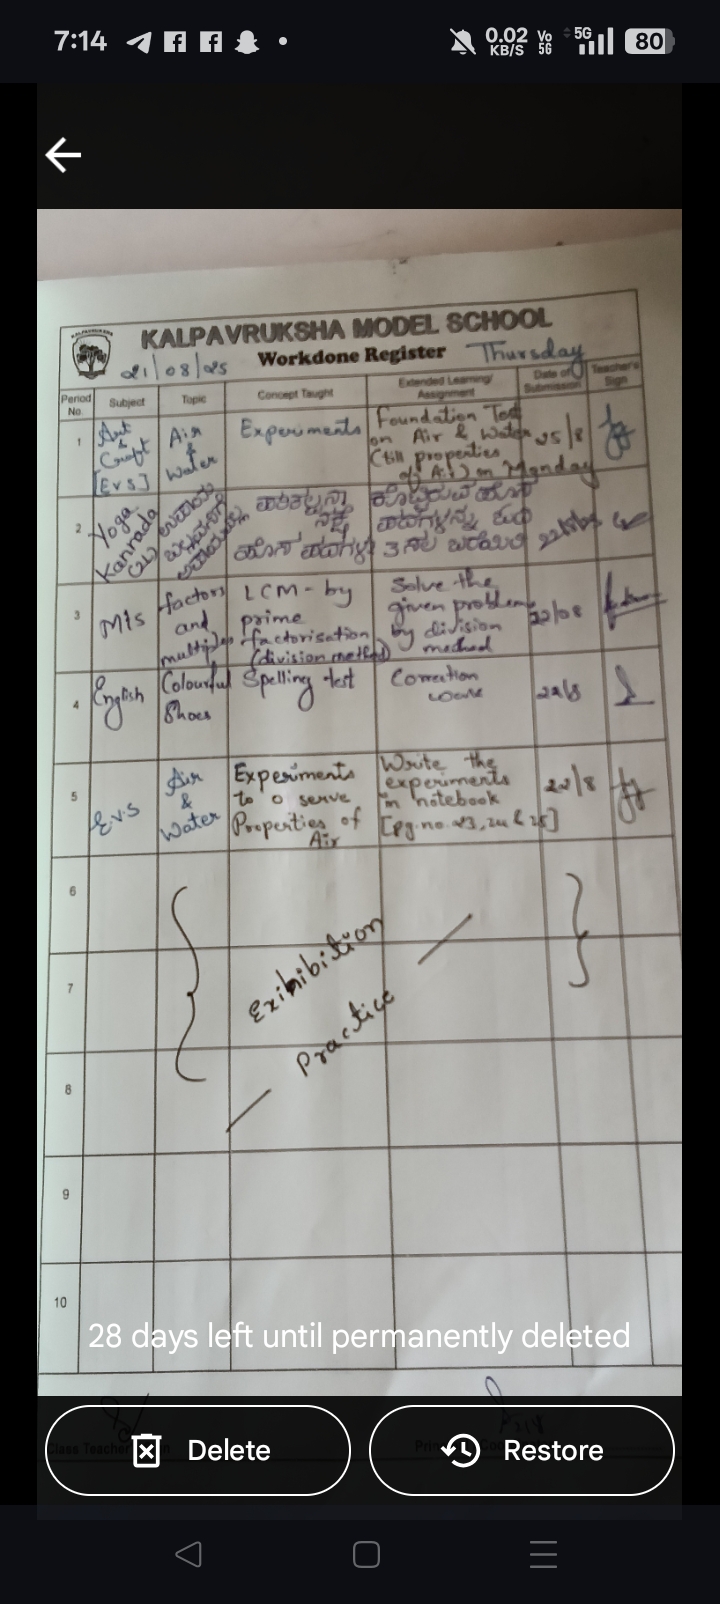 7:14
0.02 KB/S Vo 5G 5G 80
KALPAVRUKSHA
KALPAVRUKSHA MODEL SCHOOL
21/08/25 Workdone Register Thursday
Period No. Subject Topic Concept Taught Extended Learning/ Assignment Date of Submission Teacher's Sign
1
Art & Craft [EVS]
Air & Water
Experiments
Foundation Test
on Air & Water
(till properties
of Air) on Monday
25/8
2
Yoga
Kannada
ಹೊಸ ಪದಗಳು
ಪದಗಳನ್ನು
3 ಸಲ ಬರೆಯಿರಿ
3
M1s
factors
and
multiples
LCM - by
prime
factorisation
(division method)
Solve the
given problems
by division
method
22/08
4
English
Colourful
Shoes
Spelling test
Correction
22/8
5
E.V.S
Air
&
Water
Experiments
to o serve
Properties of
Air
Write the
experiments
in notebook
[pg.no.23,24 & 25]
22/8
6
7
8
Exihibition
Practice
9
10
28 days left until permanently deleted
Class Teacher
Delete
Restore